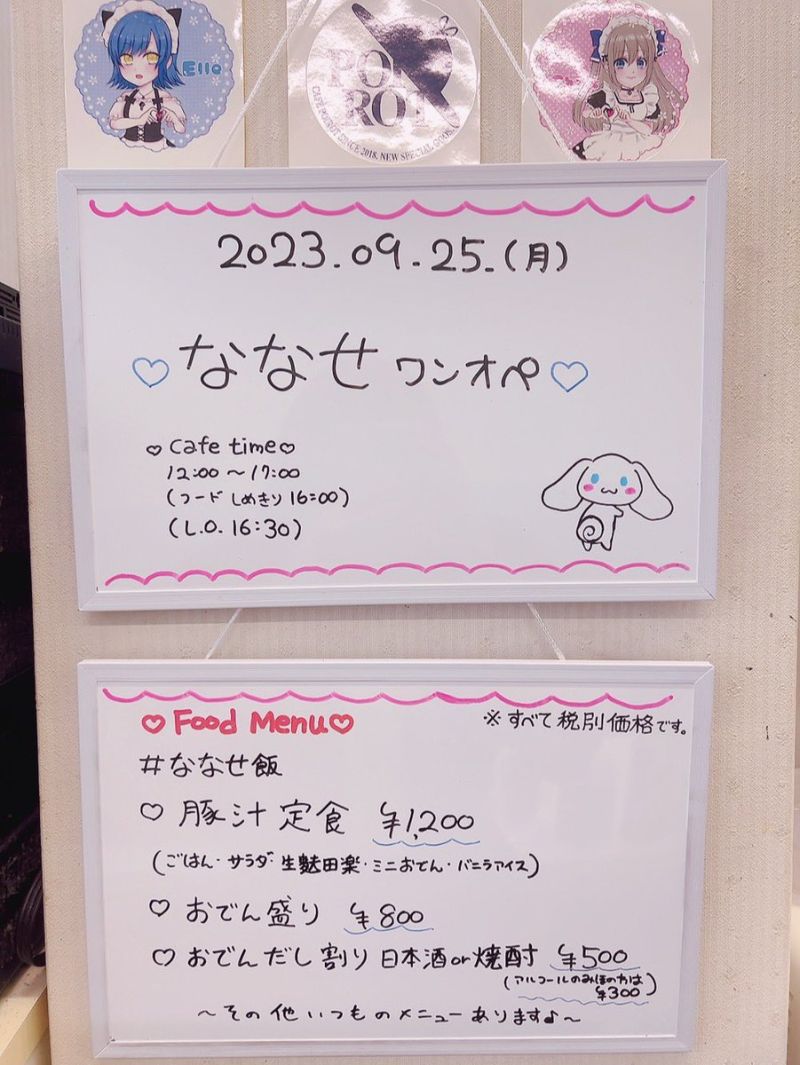 Ello
POIROT
CAFE POIROT SINCE 2018. NEW SPECIAL GOODS.
2023.09.25.(月)
♡ななせ ワンオペ♡
♡ Cafe time♡
12:00 〜 17:00
(フード しめきり 16:00)
(L.O. 16:30)
♡ Food Menu♡
※すべて税別価格です。
#ななせ飯
♡ 豚汁定食 ¥1,200
(ごはん・サラダ・生麩田楽・ミニおでん・バニラアイス)
♡ おでん盛り ¥800
♡ おでんだし割り 日本酒or焼酎 ¥500
(アルコールのみほの方は
¥300)
〜その他いつものメニューあります♪〜